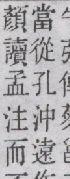 當從孔沖遠
顏讀孟注而